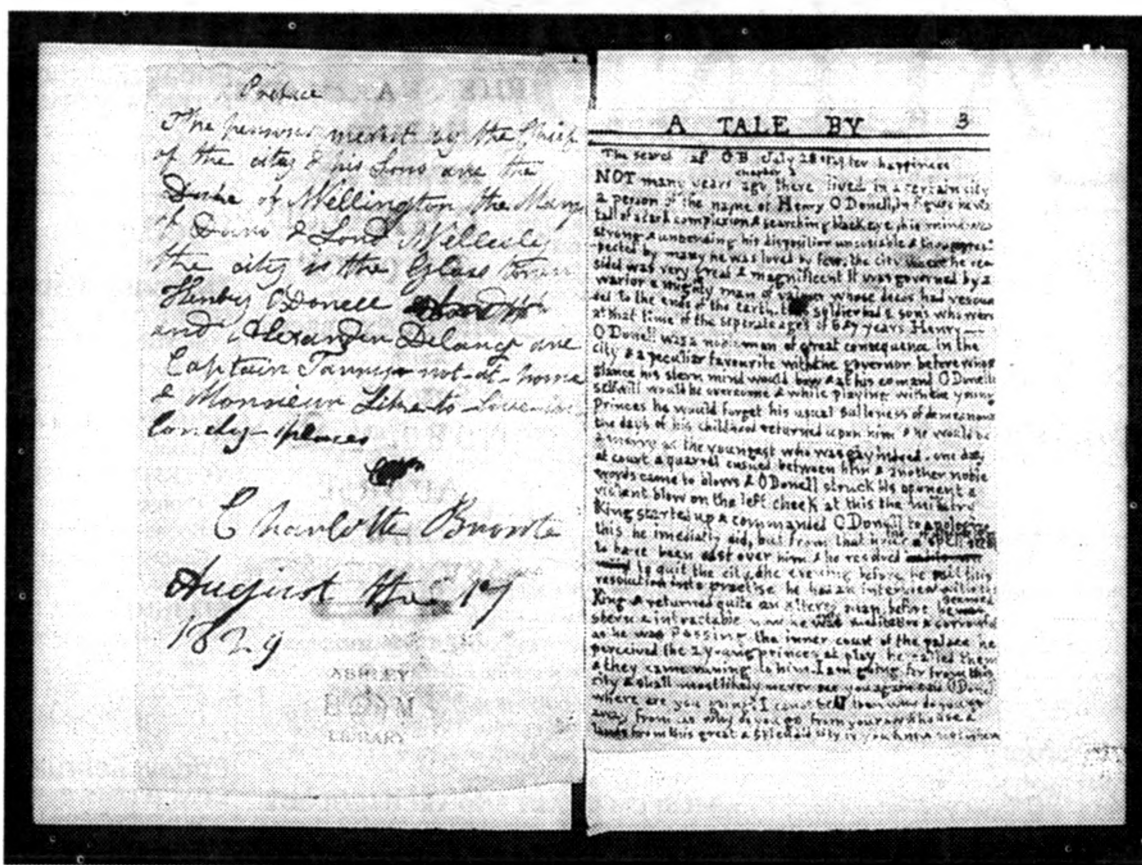 Preface
The persons meant by the Chief
of the city & his Sons are the
Duke of Wellington the Marq
of Douro & Lord Wellesley
the city is the Glass town
Henry O Donell
and Alexander Delancy are
Captain Tarry-not-at-home
& Monsieur Like-to-live-in
lonely places
Charlotte Bronte
August the 17
1829
ASHLEY
B M
LIBRARY
A TALE BY 3
The search after happiness
July 28
chapter
NOT many years ago there lived in a certain city
a person of the name of Henry O Donell, in figure he was
tall of a dark complexion & searching black eye, his mind was
strong & unbending his disposition unsociable & though res
pected by many he was loved by few. the city where he re
sided was very great & magnificent It was governed by a
warior a mighty man of valour whose deeds had resoun
ded to the ends of the earth. soldier had 2 sons who were
at that time of the seperate ages of 6 & 7 years Henry
O Donell was a nobleman of great consequence in the
city & a peculiar favourite with the governor before whose
glance his stern mind would bow & at his comand O Donells
selfwill would be overcome & while playing with the young
Princes he would forget his usual sulleness of demeanour
the days of his childhood returned upon him & he would be
as merry as the youngest who was gay indeed. one day
at court a quarrel ensued between him & another noble
words came to blows & O Donell struck his oponent a
violent blow on the left cheek at this the military
King started up & commanded O Donell to apologize
this he imediatly did, but from that hour a spell
to have been cast over him & he resolved
to quit the city. the evening before he put this
resolution into practise he had an interview with the
King & returned quite an altered man before he seemed
stern & intractable now he was meditative & sorrowful
as he was Passing the inner court of the palace he
perceived the 2 young princes at play he called them
& they came runing to him. I am going far from this
city & shall most likely never see you again said O Donell
where are you going? I cannot tell then why do you go
away from us why do you go from your own house &
lands from this great & splendid city to you know not where